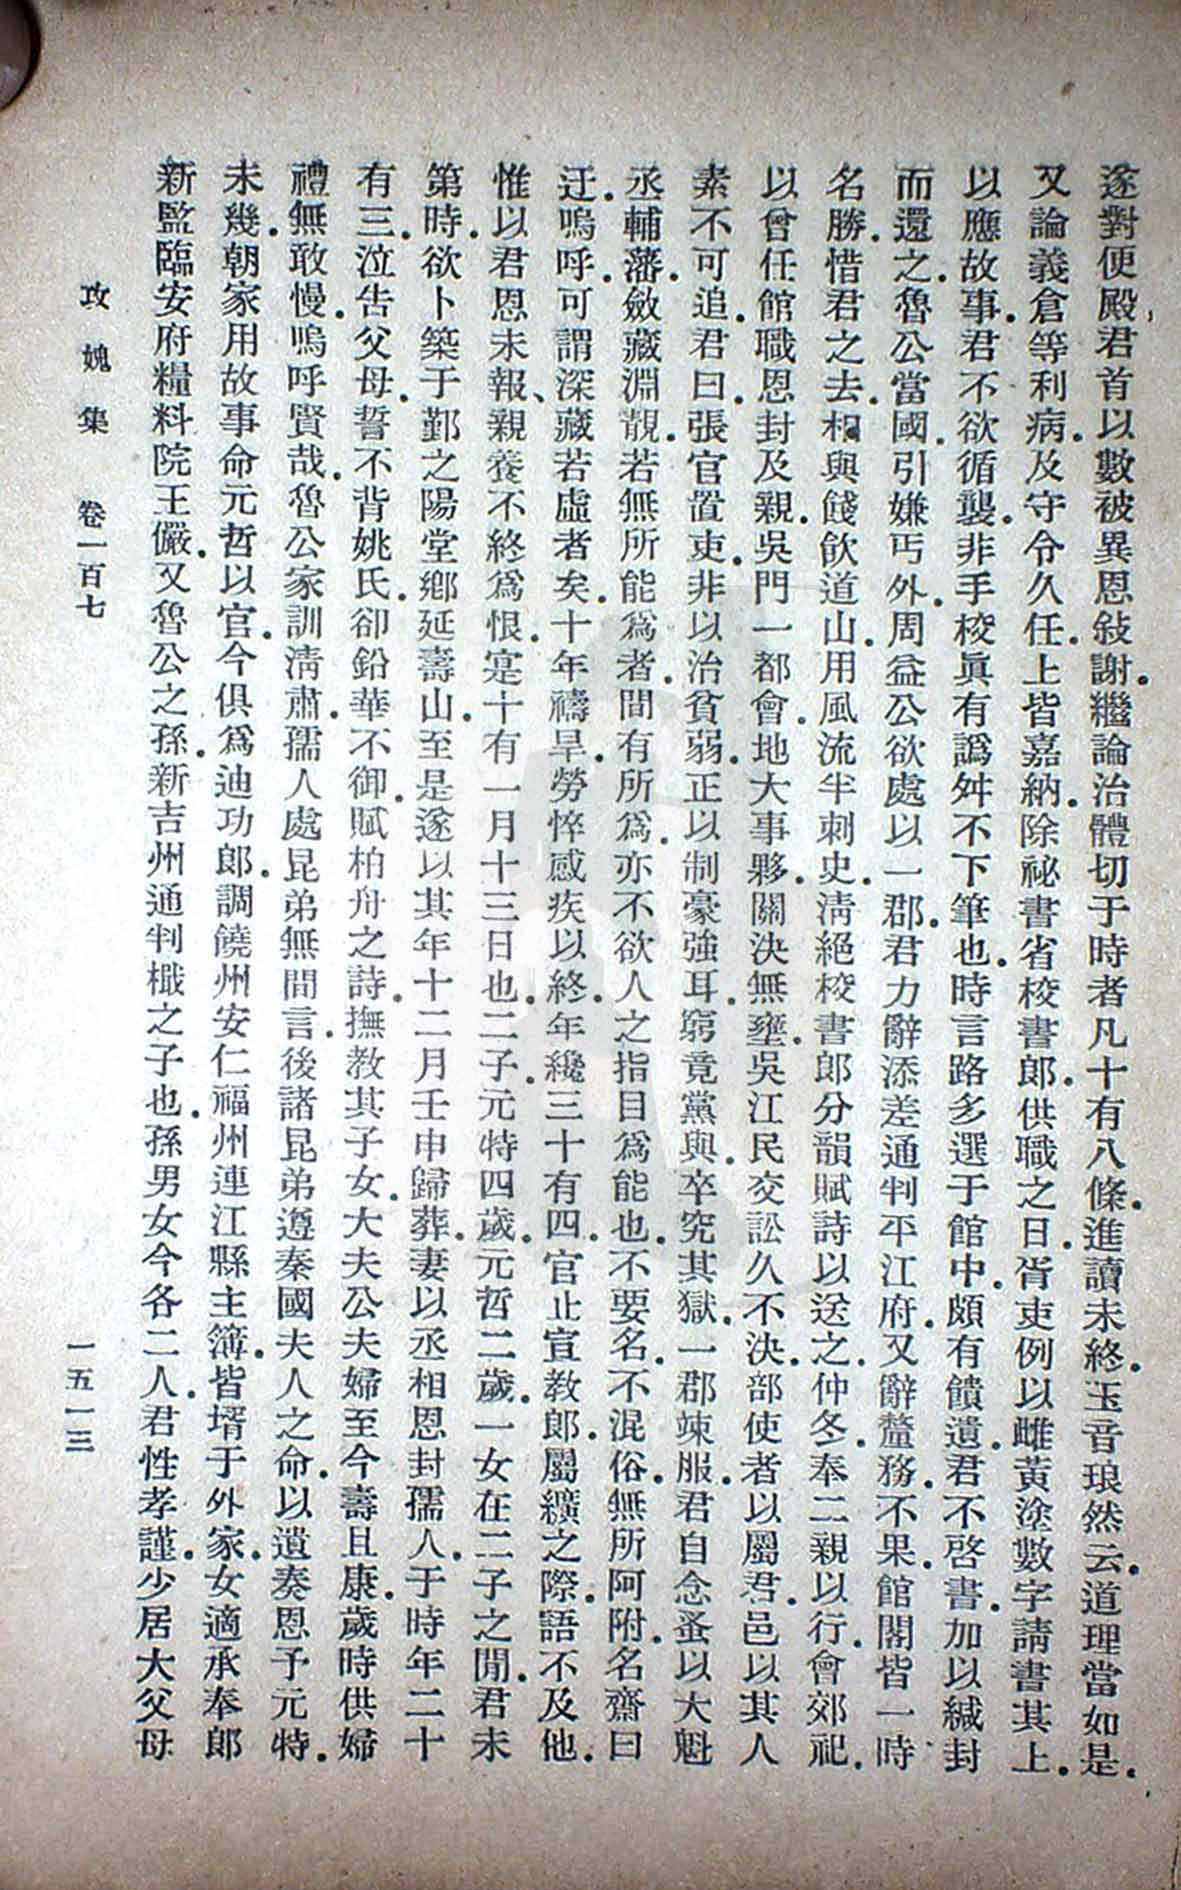 遂對便殿君首以數被異恩敍謝繼論治體切于時者凡十有八條進讀未終玉音琅然云道理當如是
又論義倉等利病及守令久任上皆嘉納除祕書省校書郎供職之日胥吏例以雌黃塗數字請書其上
以應故事君不欲循襲非手校眞有譌舛不下筆也時言路多選于館中頗有饋遺君不啓書加以緘封
而還之魯公當國引嫌丐外周益公欲處以一郡君力辭添差通判平江府又辭釐務不果館閣皆一時
名勝惜君之去相與餞飮道山用風流半刺史淸絕校書郎分韻賦詩以送之仲冬奉二親以行會郊祀
以曾任館職恩封及親吳門一都會地大事夥關決無壅吳江民交訟久不決部使者以屬君邑以其人
素不可追君曰張官置吏非以治貧弱正以制豪強耳窮竟黨與卒究其獄一郡竦服君自念蚤以大魁
丞輔藩斂藏淵靚若無所能爲者間有所爲亦不欲人之指目爲能也不要名不混俗無所阿附名齋曰
迂嗚呼可謂深藏若虛者矣十年禱旱勞悴感疾以終年纔三十有四官止宣敎郎屬纊之際語不及他
惟以君恩未報親養不終爲恨寔十有一月十三日也二子元特四歲元哲二歲一女在二子之閒君未
第時欲卜築于鄞之陽堂鄕延壽山至是遂以其年十二月壬申歸葬妻以丞相恩封孺人于時年二十
有三泣告父母誓不背姚氏卻鉛華不御賦柏舟之詩撫教其子女大夫公夫婦至今壽且康歲時供婦
禮無敢慢嗚呼賢哉魯公家訓淸肅孺人處昆弟無間言後諸昆弟遵秦國夫人之命以遺奏恩予元特
未幾朝家用故事命元哲以官今俱爲迪功郎調饒州安仁福州連江縣主簿皆壻于外家女適承奉郎
新監臨安府糧料院王儼又魯公之孫新吉州通判檝之子也孫男女今各二人君性孝謹少居大父母
攻媿集 卷一百七 一五一三